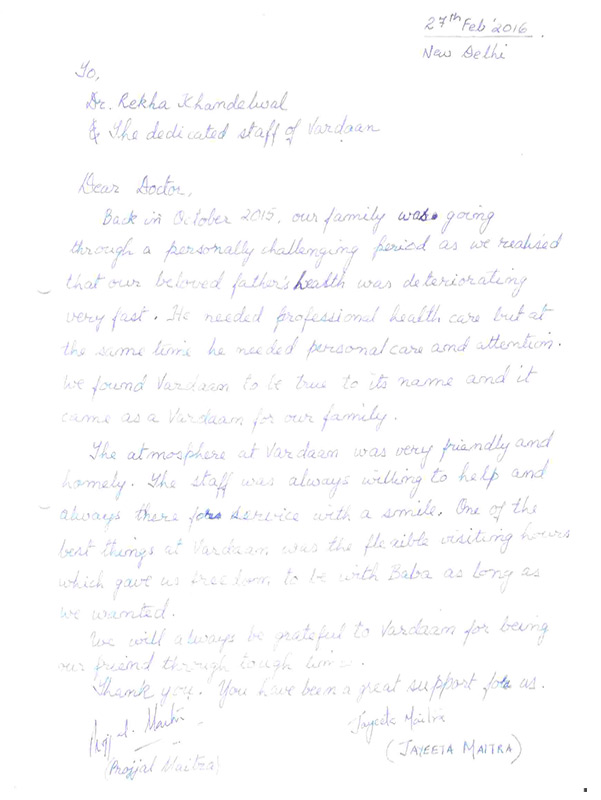 27th Feb' 2016.
New Delhi
To,
Dr. Rekha Khandelwal
& The dedicated staff of Vardaan
Dear Doctor,
Back in October 2015, our family was going
through a personally challenging period as we realised
that our beloved father's health was deteriorating
very fast. He needed professional health care but at
the same time he needed personal care and attention.
We found Vardaan to be true to its name and it
came as a Vardaan for our family.
The atmosphere at Vardaan was very friendly and
homely. The staff was always willing to help and
always there for service with a smile. One of the
best things at Vardaan was the flexible visiting hours
which gave us freedom to be with Baba as long as
we wanted.
We will always be grateful to Vardaan for being
our friend through tough time.
Thank you. You have been a great support for us.
Maitra
Jayeeta Maitra
(Projjal Maitra)
(JAYEETA MAITRA)